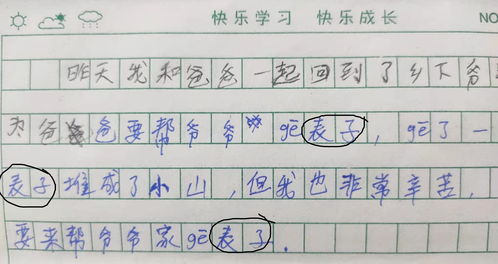 快乐学习 快乐成长 NO
昨天我和爸爸一起回到了乡下爷
为爸爸要帮爷爷gē表子，gē了一
表子堆成了小山，但我也非常辛苦，
要来帮爷爷家gē表子．